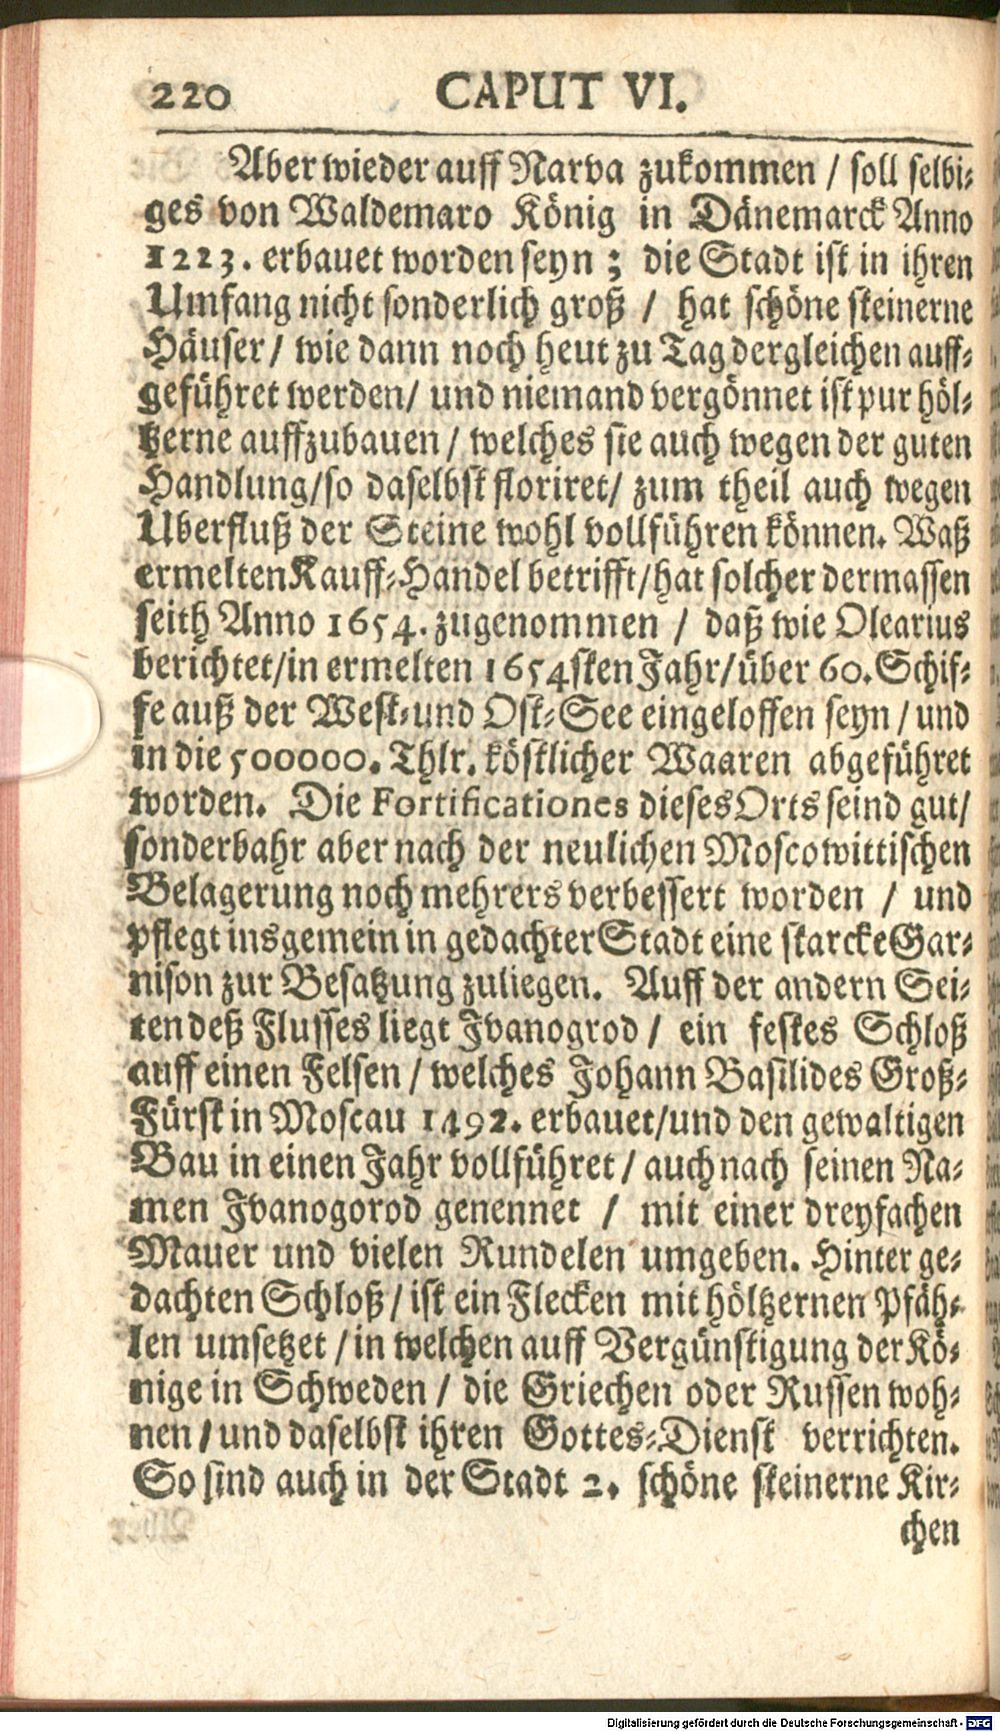 220 CAPUT VI.
Aber wieder auff Narva zukommen / soll selbi-
ges von Waldemaro König in Dänemarck Anno
1223. erbauet worden seyn ; die Stadt ist in ihren
Umfang nicht sonderlich groß / hat schöne steinerne
Häuser / wie dann noch heut zu Tag dergleichen auff-
geführet werden / und niemand vergönnet ist pur höl-
tzerne auffzubauen / welches sie auch wegen der guten
Handlung / so daselbst floriret / zum theil auch wegen
Uberfluß der Steine wohl vollführen können. Waß
ermelten Kauff-Handel betrifft / hat solcher dermassen
seith Anno 1654. zugenommen / daß wie Olearius
berichtet / in ermelten 1654sten Jahr / über 60. Schif-
fe auß der West- und Ost-See eingeloffen seyn / und
in die 500000. Thlr. köstlicher Waaren abgeführet
worden. Die Fortificationes dieses Orts seind gut /
sonderbahr aber nach der neulichen Moscowittischen
Belagerung noch mehrers verbessert worden / und
pflegt insgemein in gedachter Stadt eine starcke Gar-
nison zur Besatzung zuliegen. Auff der andern Sei-
ten deß Flusses liegt Jvanogrod / ein festes Schloß
auff einen Felsen / welches Johann Basilides Groß-
Fürst in Moscau 1492. erbauet / und den gewaltigen
Bau in einen Jahr vollführet / auch nach seinen Na-
men Jvanogorod genennet / mit einer dreyfachen
Mauer und vielen Rundelen umgeben. Hinter ge-
dachten Schloß / ist ein Flecken mit höltzernen Pfäh-
len umsetzet / in welchen auff Vergünstigung der Kö-
nige in Schweden / die Griechen oder Russen woh-
nen / und daselbst ihren Gottes-Dienst verrichten.
So sind auch in der Stadt 2. schöne steinerne Kir-
chen
Digitalisierung gefördert durch die Deutsche Forschungsgemeinschaft - DFG